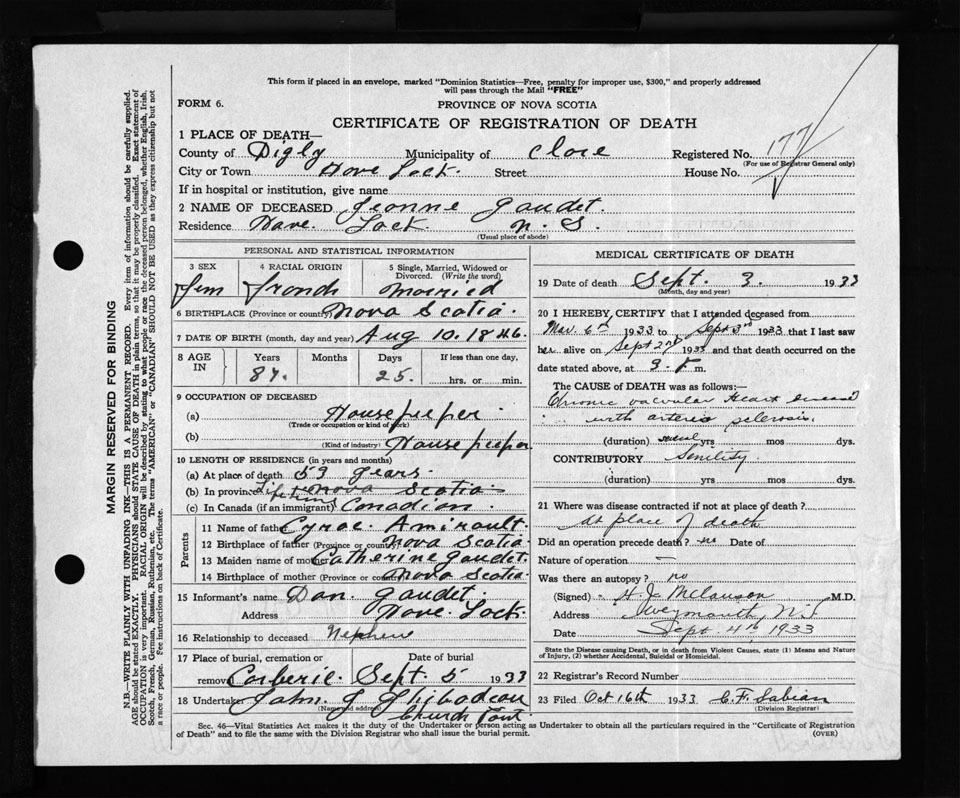 This form if placed in an envelope, marked "Dominion Statistics—Free, penalty for improper use, $300," and properly addressed
will pass through the Mail "FREE"
FORM 6.
PROVINCE OF NOVA SCOTIA
CERTIFICATE OF REGISTRATION OF DEATH
1 PLACE OF DEATH—
County of Digby Municipality of Clare Registered No. 177
(For use of Registrar General only)
City or Town Dove Lock. Street House No.
If in hospital or institution, give name
2 NAME OF DECEASED Jeanne Gaudet.
Residence Dave. Lock N. S.
(Usual place of abode)
PERSONAL AND STATISTICAL INFORMATION
3 SEX 4 RACIAL ORIGIN 5 Single, Married, Widowed or
Divorced. (Write the word)
Fem French Married
6 BIRTHPLACE (Province or country) Nova Scotia.
7 DATE OF BIRTH (month, day and year) Aug 10. 1846.
8 AGE IN Years Months Days If less than one day,
87. 25. hrs. or min.
9 OCCUPATION OF DECEASED
(a) House keeper
(Trade or occupation or kind of work)
(b) House keeper
(Kind of industry)
10 LENGTH OF RESIDENCE (in years and months)
(a) At place of death 59 years.
(b) In province Lifetime Nova Scotia
(c) In Canada (if an immigrant) Canadian.
Parents
11 Name of father Cyrac. Amirault.
12 Birthplace of father (Province or country) Nova Scotia
13 Maiden name of mother Catherine Gaudet.
14 Birthplace of mother (Province or country) Nova Scotia
15 Informant's name Dan. Gaudet.
Address Dove. Lock.
16 Relationship to deceased Nephew
17 Place of burial, cremation or Date of burial
removal Corberie. Sept. 5 1933
18 Undertaker John. J Thibodeau
(Name and address)
Church Point
MEDICAL CERTIFICATE OF DEATH
19 Date of death Sept. 3. 1933
(Month, day and year)
20 I HEREBY CERTIFY that I attended deceased from
Mar. 6th 1933 to Sept 3rd 1933 that I last saw
her alive on Sept 2nd 1933 and that death occurred on the
date stated above, at 9 P. m.
The CAUSE OF DEATH was as follows:—
Chronic valvular Heart disease
with arterio sclerosis
(duration) several yrs mos dys.
CONTRIBUTORY Senility.
(duration) yrs mos dys.
21 Where was disease contracted if not at place of death?
At place of death
Did an operation precede death? no Date of
Nature of operation —
Was there an autopsy? no
(Signed) M.D.
Address Weymouth, N.S
Date Sept. 4th 1933
State the Disease causing Death, or in death from Violent Causes, state (1) Means and Nature
of Injury, (2) whether Accidental, Suicidal or Homicidal.
22 Registered Record Number
23 Filed Oct 16th 1933 C. F.
(Division Registrar)
Sec. 46—Vital Statistics Act makes it the duty of the Undertaker or person acting as Undertaker to obtain all the particulars required in the "Certificate of Registration
of Death" and to file the same with the Division Registrar who shall issue the burial permit.
(OVER)
MARGIN RESERVED FOR BINDING
N.B.—WRITE PLAINLY WITH UNFADING INK—THIS IS A PERMANENT RECORD. Every item of information should be carefully supplied.
AGE should be stated EXACTLY. PHYSICIANS should STATE CAUSE OF DEATH in plain terms, so that it may be properly classified. Exact statement of
OCCUPATION is very important. RACIAL ORIGIN will be described by stating to what people or race the deceased person belonged, whether English, Irish,
Scotch, French, German, Russian, Ruthenian, etc. The terms "AMERICAN" or "CANADIAN" SHOULD NOT BE USED as they express citizenship but not
a race or people. See instructions on back of Certificate.